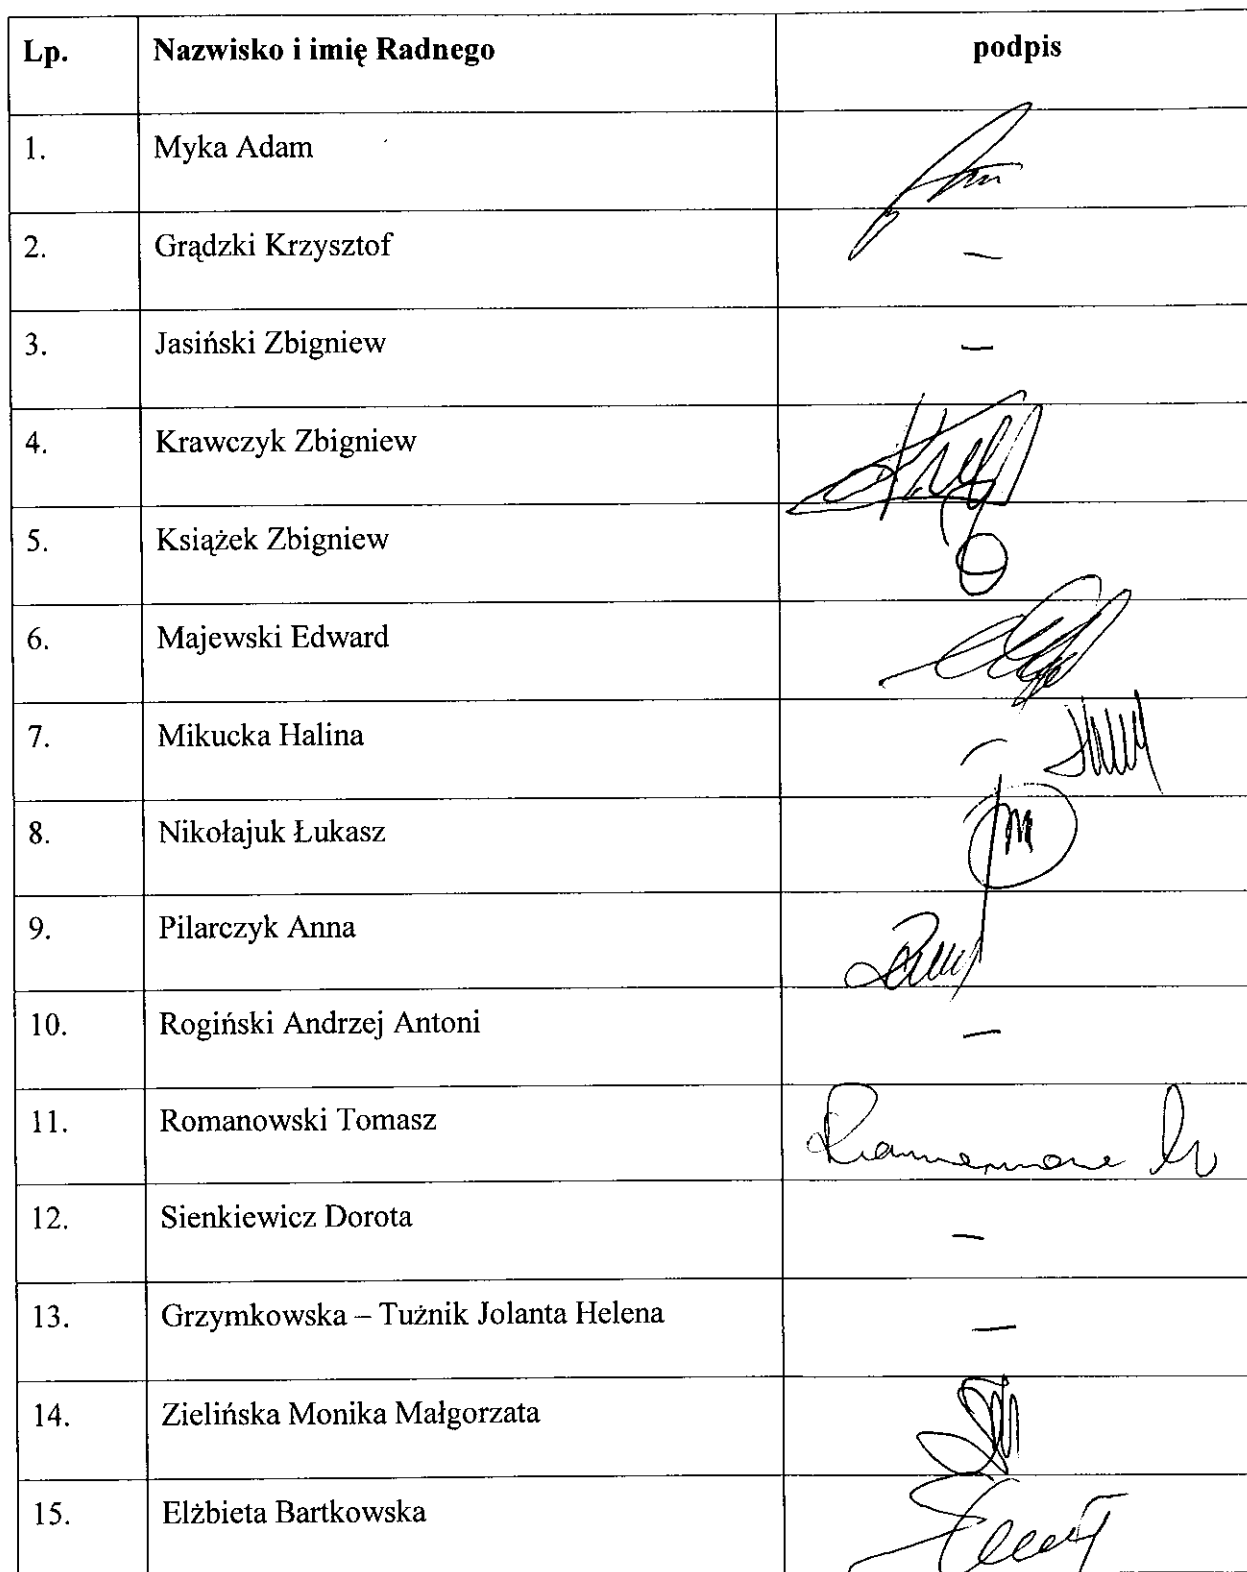 Lp. Nazwisko i imię Radnego podpis
1. Myka Adam
2. Grądzki Krzysztof –
3. Jasiński Zbigniew –
4. Krawczyk Zbigniew
5. Książek Zbigniew
6. Majewski Edward
7. Mikucka Halina –
8. Nikołajuk Łukasz
9. Pilarczyk Anna
10. Rogiński Andrzej Antoni –
11. Romanowski Tomasz
12. Sienkiewicz Dorota –
13. Grzymkowska – Tużnik Jolanta Helena –
14. Zielińska Monika Małgorzata
15. Elżbieta Bartkowska